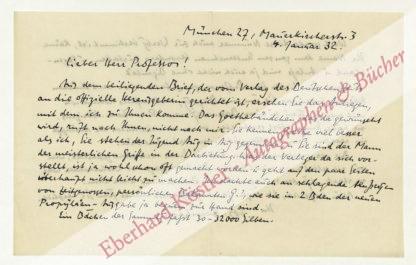 München 27, Mauerkircherstr. 3
4. Januar 32.
Lieber Herr Professor!
Aus dem beiliegenden Brief, der vom Verlag des Deutschen
an die offizielle Herausgeberin gerichtet ist, ersehen Sie das
mit dem ich zu Ihnen komme. Das Goethebändchen, das gewünscht
wird, ruft nach Ihnen, nicht nach mir. Sie kennen viel besser
als ich, Sie stehen der Jugend Sie sind der Mann
der meisterlichen Griffe in der Darbietung. der Verleger da sich vor-
stellt, ist ja wohl schon oft gemacht worden u. geht auf den paar Seiten
überhaupt nicht leicht zu machen. dachte auch an schlagende Äußerungen
von Zeitgenossen, persönliche G.'s, wie sie in 2 Bden der neuen
Propyläen-Ausgabe ja zur Hand sind.
Ein Bändchen der Sammlung 30-32000 Silben.
Eberhard Köstler Autographen & Bücher